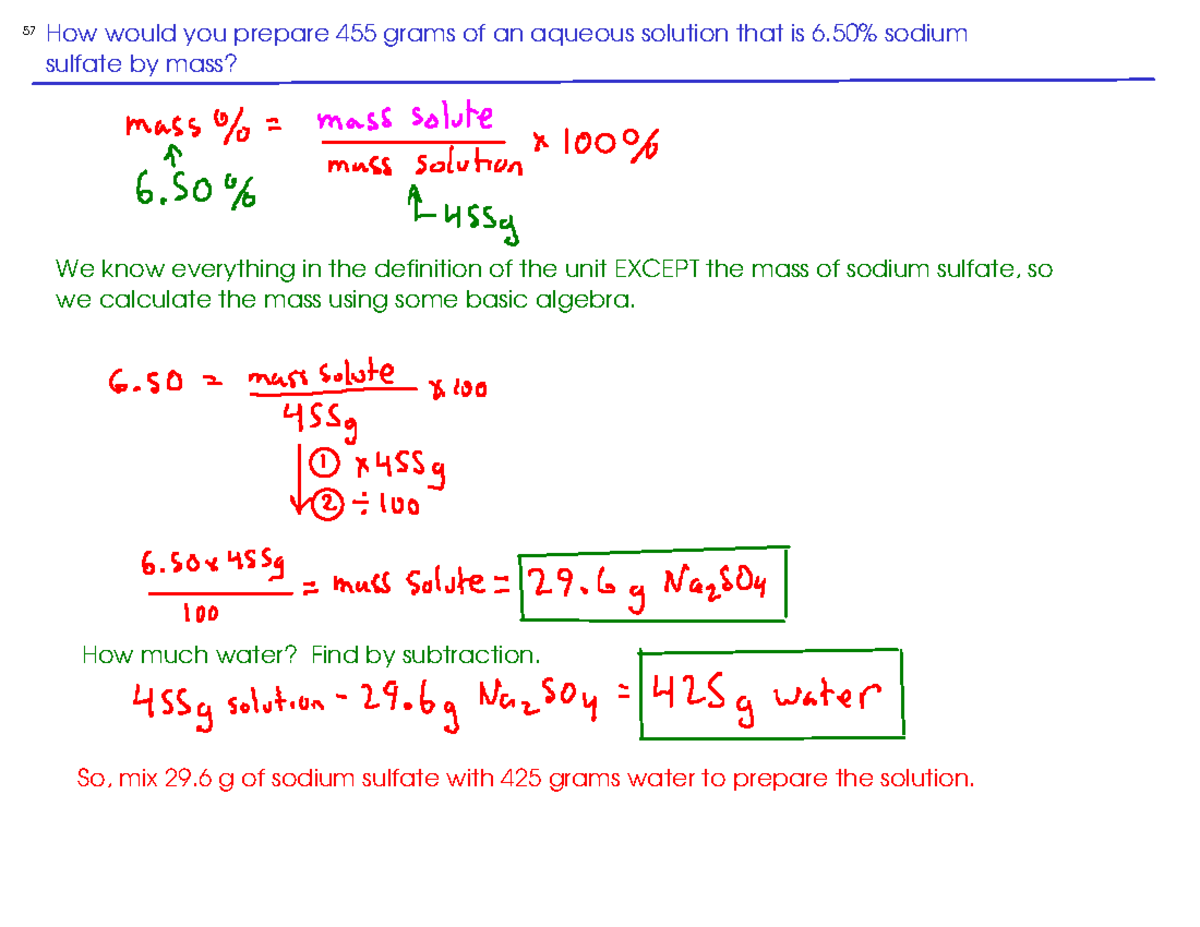 57 How would you prepare 455 grams of an aqueous solution that is 6.50% sodium
sulfate by mass?
mass % = mass solute / mass solution x 100%
6.50%
455g
We know everything in the definition of the unit EXCEPT the mass of sodium sulfate, so
we calculate the mass using some basic algebra.
6.50 = mass solute / 455g x 100
① x 455g
② ÷ 100
6.50 x 455g / 100 = mass solute = 29.6 g Na₂SO₄
How much water? Find by subtraction.
455g solution - 29.6g Na₂SO₄ = 425 g water
So, mix 29.6 g of sodium sulfate with 425 grams water to prepare the solution.